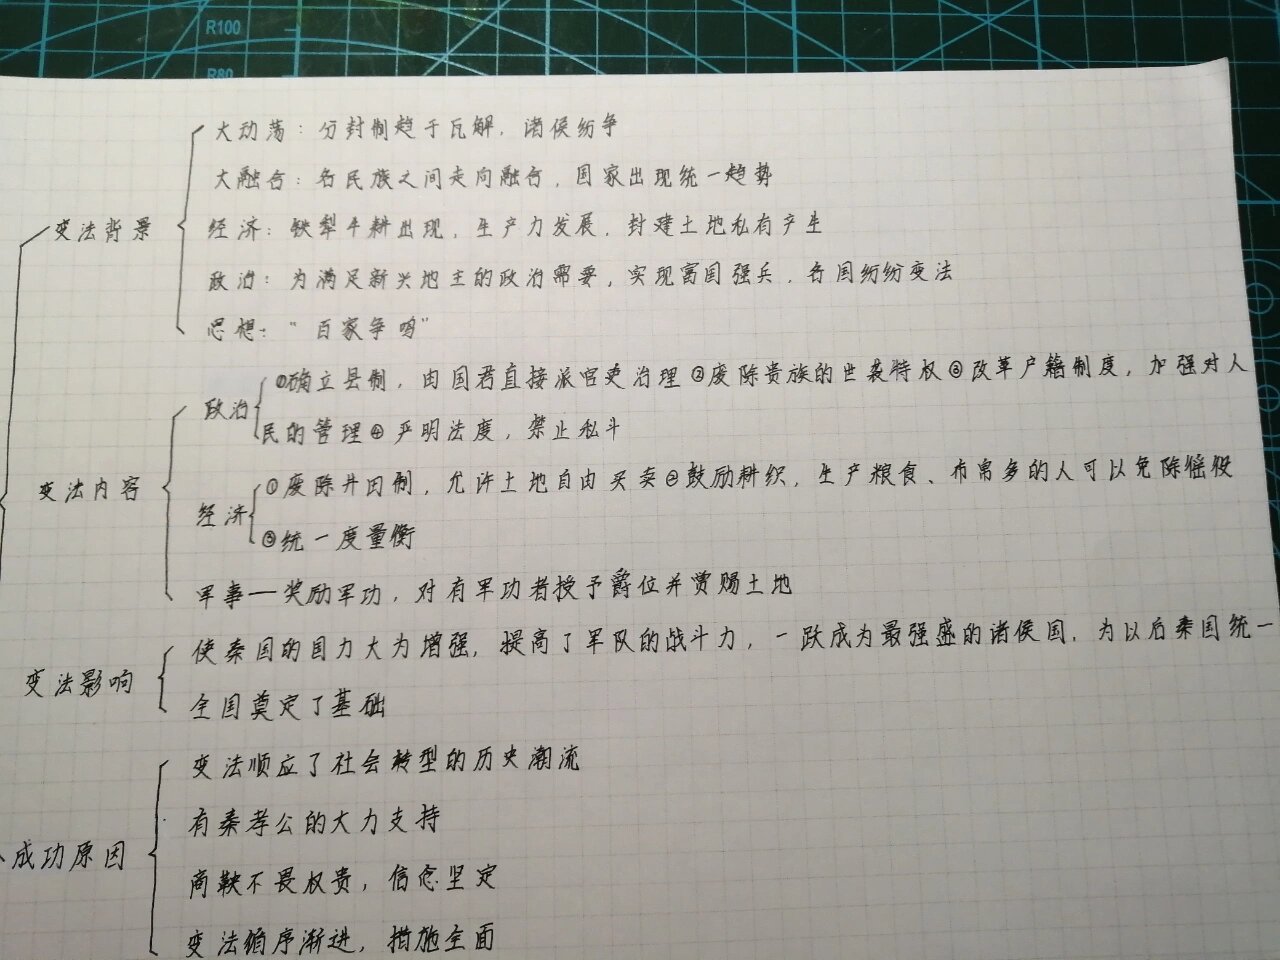 R100
R80
大动荡：分封制趋于瓦解，诸侯纷争
大融合：各民族之间走向融合，国家出现统一趋势
变法背景
经济：铁犁牛耕出现，生产力发展，封建土地私有产生
政治：为满足新兴地主的政治需要，实现富国强兵，各国纷纷变法
思想：“百家争鸣”
①确立县制，由国君直接派官吏治理②废除贵族的世袭特权③改革户籍制度，加强对人
政治
民的管理④严明法度，禁止私斗
变法内容
①废除井田制，允许土地自由买卖②鼓励耕织，生产粮食、布帛多的人可以免除徭役
经济
③统一度量衡
军事——奖励军功，对有军功者授予爵位并赏赐土地
使秦国的国力大为增强，提高了军队的战斗力，一跃成为最强盛的诸侯国，为以后秦国统一
变法影响
全国奠定了基础
变法顺应了社会转型的历史潮流
有秦孝公的大力支持
成功原因
商鞅不畏权贵，信念坚定
变法循序渐进，措施全面